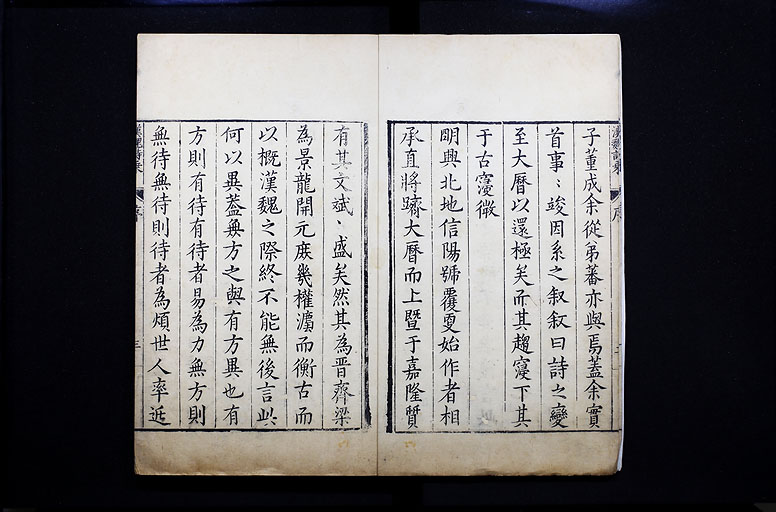 子董成余從弟蕃亦與焉蓋余實
首事:竣因系之叙叙曰詩之變
至大曆以還極矣而其趨寖下其
于古寖微
明興北地信陽號覆夏始作者相
承直將躋大曆而上暨于嘉隆質
有其文斌、盛矣然其為晋齊梁
為景龍開元庶幾權瀛而衡古而
以概漢魏之際終不能無後言此
何以異蓋無方之與有方異也有
方則有待有待者易為力無方則
無待無待則待者為煩世人率近
漢魏詩乗
序
三